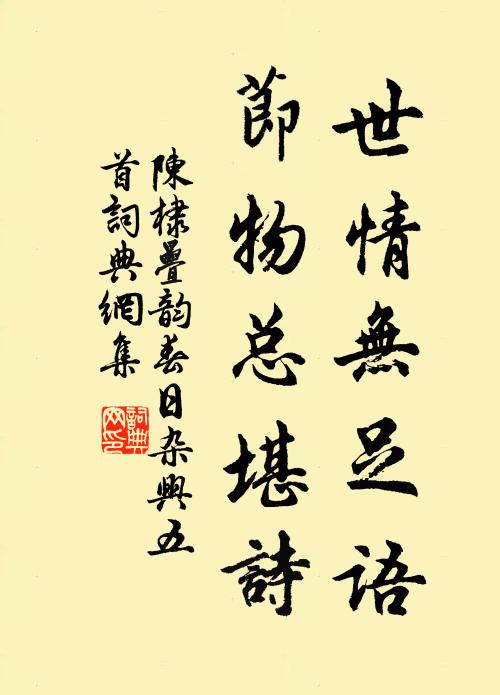 世情無足語
節物总堪詩
陳棣疊韵春日杂興五
首詞典網集
詞典网印